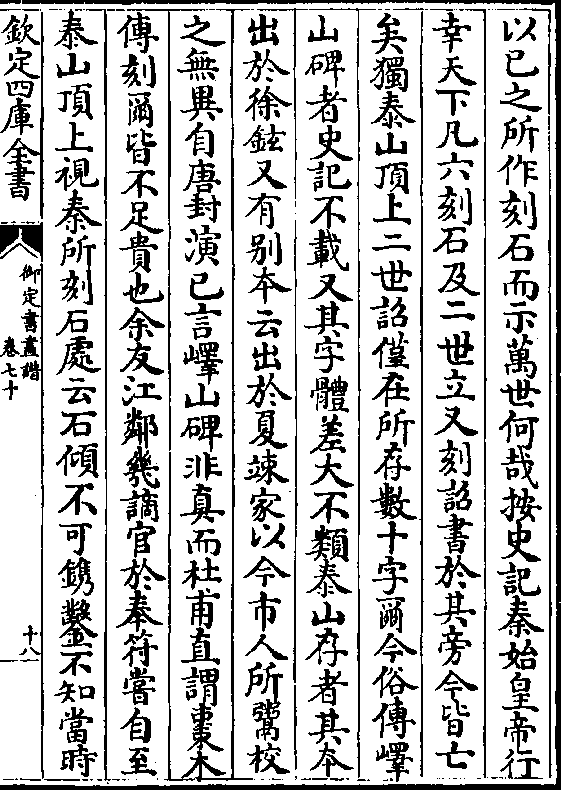 以已之所作刻石而示萬世何哉按史記秦始皇帝行
幸天下凡六刻石及二世立又刻詔書於其旁今皆亡
矣獨泰山頂上二世詔僅在所存數十字爾今俗傳嶧
山碑者史記不載又其字體差大不類泰山存者其本
出於徐鉉又有别本云出於夏竦家以今市人所鬻校
之無異自唐封演已言嶧山碑非真而杜甫直謂棗木
傳刻爾皆不足貴也余友江鄰幾謫官於奉符嘗自至
泰山頂上視秦所刻石處云石頑不可鐫鑿不知當時
欽定四庫全書
御定書畫譜
卷七十
十八